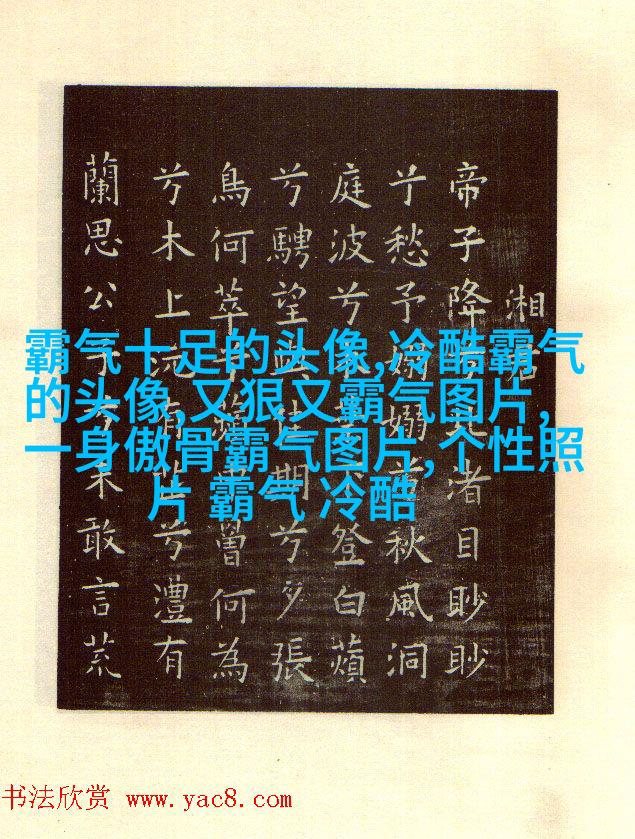 湘
帝子降渚目眇眇
兮愁予嫋嫋兮秋風洞
庭波兮登白蘋
兮騁望與佳期兮夕張
鳥何萃罾何為
兮木上沅有芷兮澧有
蘭思公子兮未敢言荒
霸气十足的头像,冷酷霸气
的头像,又狠又霸气图片,
一身傲骨霸气图片,个性照
片 霸气 冷酷
书法欣赏 www.yac8.com